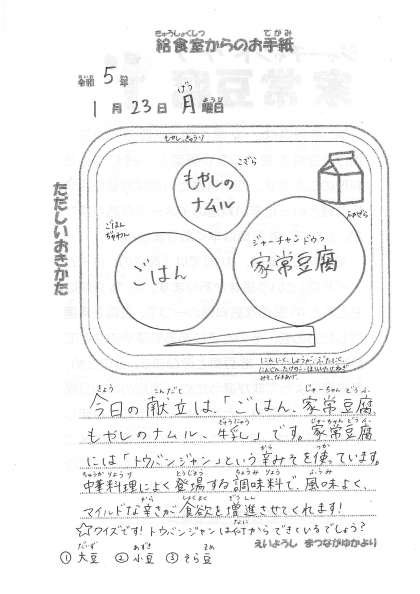 給食室からのお手紙
令和5年
1月23日月曜日
ただしいおきかた
もやし、きゅうり
こざら
もやしの
ナムル
ごはん
ぢゃわん
ごはん
ジャーチャンドウフ
家常豆腐
にんにく、しょうが、ぶたにく、
にんじん、たけのこ、はくさい、ねぎ
今日の献立は、「ごはん、家常豆腐、
もやしのナムル、牛乳」です。家常豆腐
には「トウバンジャン」という辛みそを使っています。
中華料理によく登場する調味料で、風味よく、
マイルドな辛さが食欲を増進させてくれます!
☆クイズです!トウバンジャンは何からできているでしょう?
えいようし まつながゆかより
①大豆 ②小豆 ③そら豆